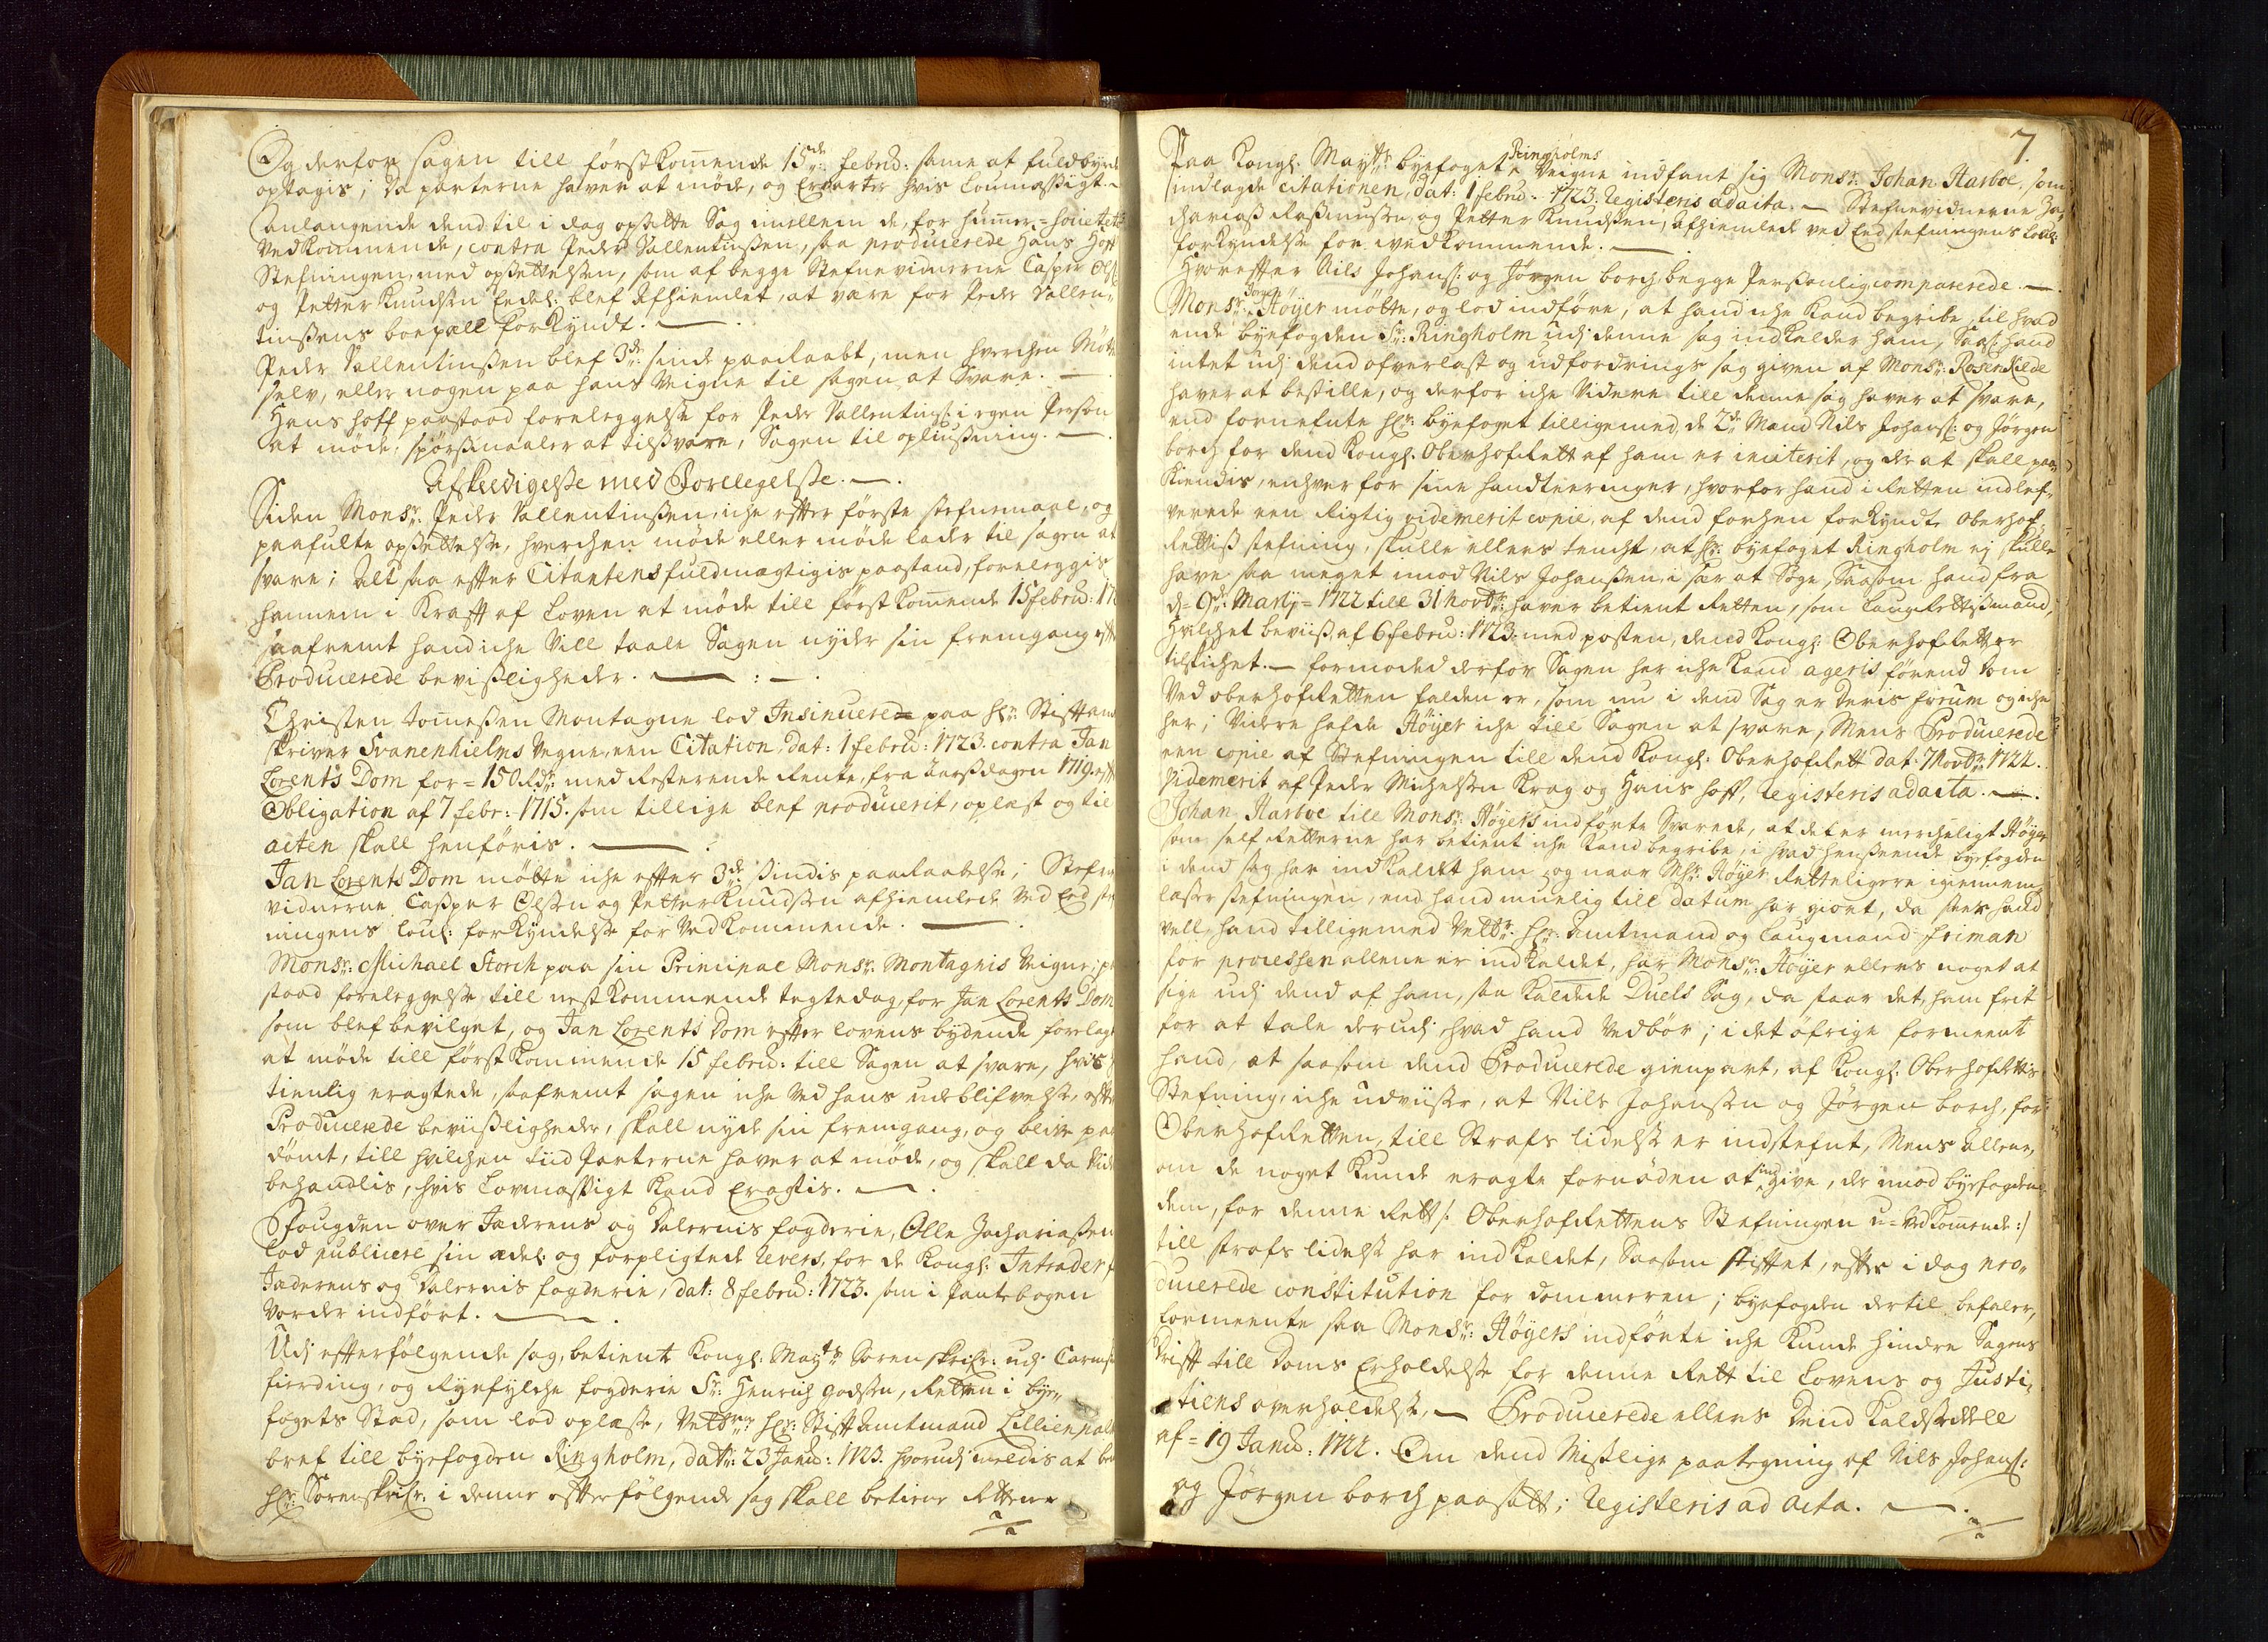 Og derfor sagen till förstkom̄ende 15de febru: sam̄e at fuldbyrde
optagis, da parterne haver at möde, og Erwarter hvis loumeszigt.
Anlangende dend til i dag opsette Sag imellem de, for hum̄er=
Vedkommende, contra Peder Vallentinszen, saa producerede Hans Hoff
Stefningen, med opsettelszen, som af begge Stefnevidnerne Casper Ols:
og Petter Knudszen Eedel: blef Afhiemlet, at være for Peder Vallen-
tinszens boepæll forkyndt.
Peder Vallentinszen blef 3de sinde paaraabt, men hverchen Mötte
selv, eller nogen paa hans Veigne til sagen at Svare.
Hans Hoff paastood foreleggelse for Peder Vallentins: i egen Person
at möde, spörszmaaler at tilsvare, Sagen til opliuszning.
Afskeedigelsze med Forelegelsze.
Siden Monsr: Peder Vallentinszen, iche efter förste stefnemaal, og
paafulte opsettelsze, hverchen möde eller möde lader til sagen at
svare; Alt saa efter Citantens fuldmægtigis paastand, foreleggis
hannem i Kraft af Loven at möde till förstkom̄ende 15 febru: 17
saafremt hand iche Vill taale Sagen nyder sin fremgang eft
Producerede beviszligheder.
Christen Tom̄eszen Montagne lod Insinuerede paa Hr: Stiftamt
skriver Svanenhielms Vegne, een Citation, dat: 1 febru: 1723. contra Jan
Lorents Dom for = 150 Rdr: med Resterende Rente, fra Aarszdagen 1719. eft
Obligation af 7 febr: 1715. som tillige blef producerit, oplæst og til
acten skall henföris.
Jan Lorents Dom mötte iche efter 3de sindis paaraabelse; Stefne
vidnerne Caszper Olszen og Petter Knudszen afhiemlede Ved Eed stef
ningens loul: forkyndelse for Vedkommende.
Monsr: Michael Storch paa sin Principal Monsr: Montagnis Veigne, paa
stood foreleggelse till nestkommende tegtedag, for Jan Lorents Dom
som blef bevilget, og Jan Lorents Dom efter lovens bydende forelagt
at möde till förstkommende 15 febru: till Sagen at svare, hvis
tienlig eragtede, saafremt sagen iche ved hans udeblifvelse, efter
Producerede beviiszligheder, skall nyde sin fremgang, og blive paa
dömt, till hvilchen tiid Parterne haver at möde, og skall da Vide
behandlis, hvis Lovmæszigt kand Eragtis.
Fougden over Jæderens og Dalernis fogderie, Olle Zachariaszen
lod publicere sin ædel: og forpligtede Revers, for de Kongl: Intrader f
Jæderens og Dalernis fogderie, dat: 8 febru: 1723. som i Pantebogen
vorder indfört.
Udj efterfölgende sag, betiente Kongl: Mayts: Sorenskrifr: udj Carmsu
fierding, og Ryefylche fogderie Sr: Henrich Godszen, Retten i bye-
fogets Stad, som lod oplæse, Velbrne: Hr: Stift Amtmand Lillienpalm
bref till byefogden Ringholm, datr: 23 Janu: 1723. hvorudj meldis at be
Hr: Sorenskrifr: i denne efterfölgende sag skall betiene Retten
7.
Paa Kongl: Mayts: byefoget Ringholms Veigne indfant sig Monsr: Johan Aarboe, som
indlagde Citationen, dat: 1 febru: 1723. Registeris ad acta. Stefnevidnerne Za-
chariasz Raszmuszen, og Petter Knudszen, afhiemlede ved Eed stefningens loul:
forkyndelse for vedkommende.
Hvorefter Nils Johans: og Jörgen borch begge Perszonlig comparerede.
Monsr: Höyer mötte, og lod indföre, at hand iche kand begribe til hvad
ende byefogden Sr: Ringholm udj denne sag indkalder ham, Saas: hand
intet udj dend ofverlast og udfordrings sag given af Monsr: Rosenkilde
haver at bestille, og derfor iche videre till denne sag haver at svare,
end fornefnte Hr: byefoget tilligemed de 2de Mænd Nils Johans: og Jörgen
borch for dend Kongl: Oberhofrett af ham er inciterit, og der at skall paa-
kiendis, enhver for sine handteeringer, hvorfor hand i Retten indlef-
verede een Rigtig videmerit copie, af dend forhen forkyndte Oberhof-
Rettisz stefning, skulle ellers tencht, at Hr: byefoget Ringholm ej skulle
have saa meget imod Nils Johanszen, i sær at Söge, Saasom hand fra
d= 9de Martij = 1722 till 31 Novbr: haver betient Retten, som Laugrettiszmand,
hvilchet beviisz af 6 febru: 1723. med posten, dend Kongl: Oberhofrett er
tilskichet. formoded derfor Sagen her iche kand ageris förend Dom
ved oberhofretten falden er, som nu i dend Sag er deris forum og iche
her; Videre hafde Höyer iche till Sagen at svare, Mens Producerede
een copie af Stefningen till dend Kongl: Oberhofrett dat: 7 Novbr: 1722.
Videmerit af Peder Michelszen Krag og Hans Hoff, Registeris ad acta.
Johan Aarboe till Monsr: Höyers indförte Svarede, at det er mercheligt Höyer
som self Retterne har betient iche kand begribe, i hvad henszeende byefogden
i dend sag har indkaldt ham, og naar Mhr: Höyer Retteligere igiennem-
læser stefningen, end hand muelig till datum har giort, da seer hand
vell, hand tilligemed Velbr: Hr: Amtmand og Laugmand Friman
for processen allene er indkaldet, har Monsr: Höyer ellers noget at
sige udj dend af ham, saa kaldede Duels Sag, da staar det, ham frit
for at tale derudj hvad hand vedbör; i det öfrige formeent
hand, at saasom dend Producerede gienpart, af Kongl: Oberhofrettis
Stefning, iche udviiser, at Nils Johanszen og Jörgen borch, for
Oberhofretten, till Strafs lidelse er indstefnt, Mens allene,
om de noget kunde eragte fornöden at indgive, der imod byefogden
dem, for denne Rett /: Oberhofrettens Stefningen u=vedkom̄ende :/
till strafs lidelse har indkaldet, Saasom Stiftet, efter i dag pro-
ducerede constitution for dommeren; byefogden dertil befaler,
formeente saa Monsr: Höyers indförte iche kunde hindre Sagens
Drift till Doms Erholdelse for denne Rett til Lovens og Justi-
tiens overholdelse, Producerede ellers dend kaldsedell
af = 19 Janu: 1722. Om dend Miszlige paategning af Nils Johans:
og Jörgen borch paasatt; Registeris ad acta.